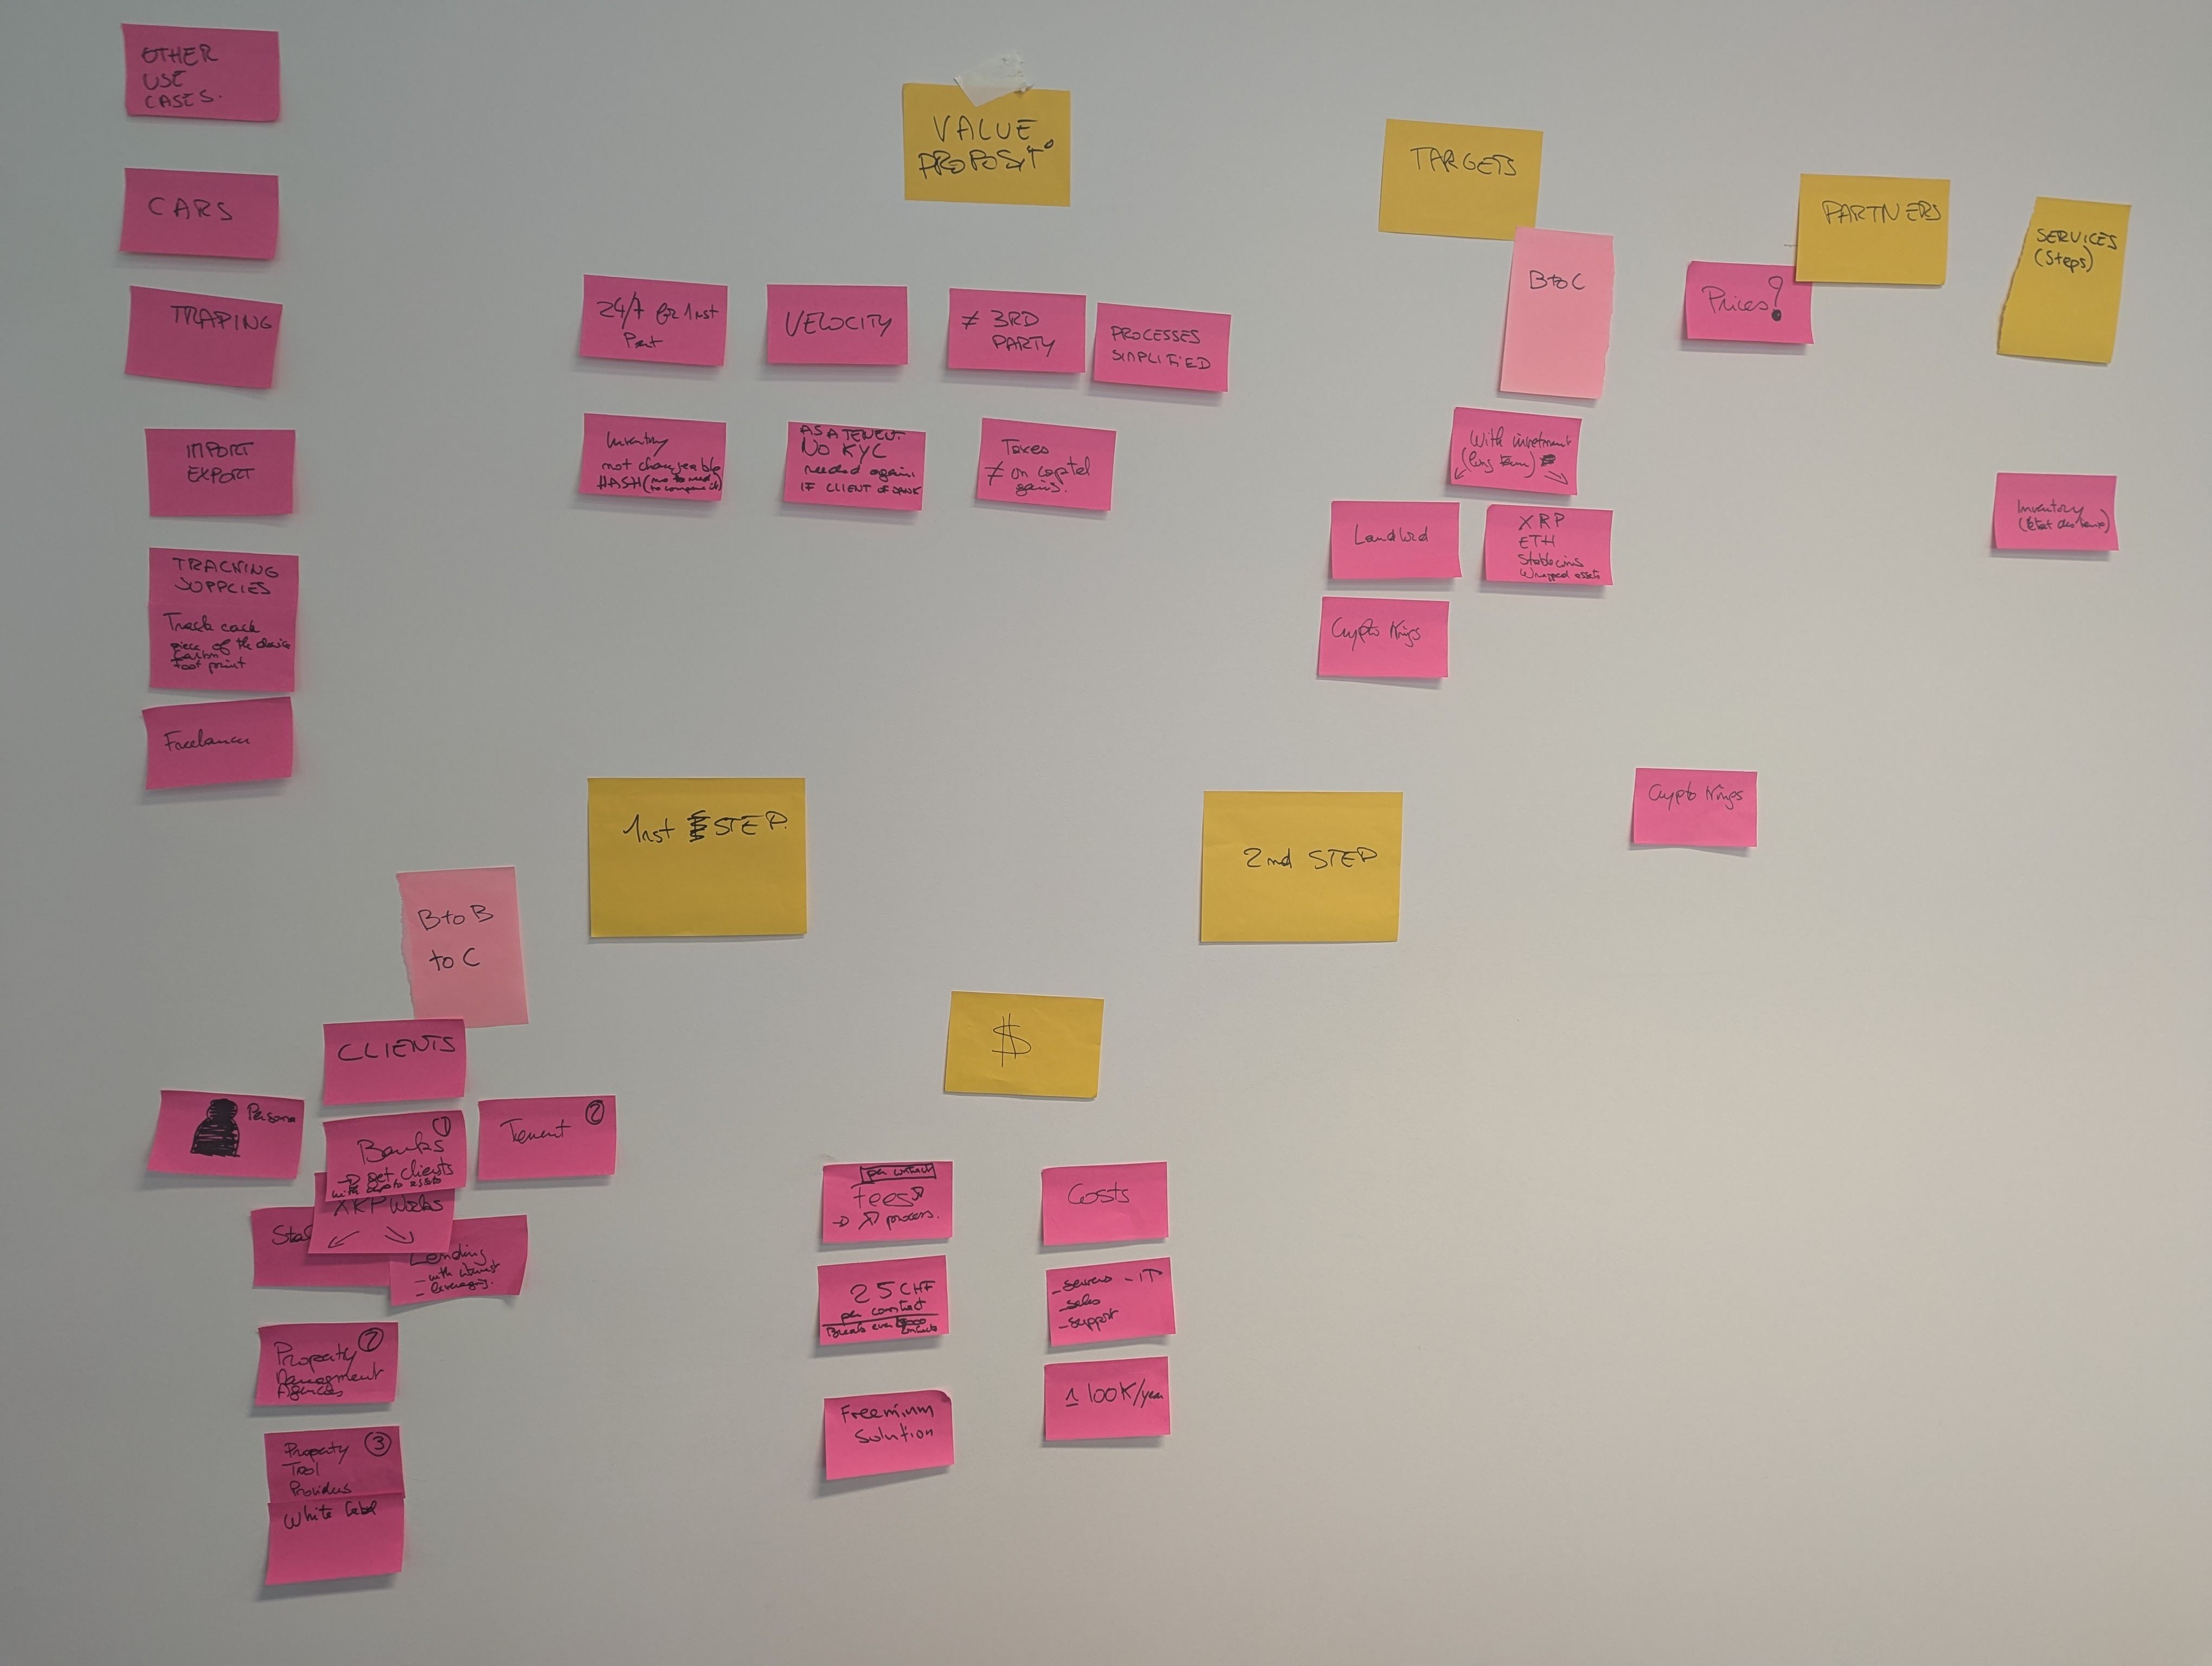 OTHER
USE
CASES.
CARS
TRADING
IMPORT
EXPORT
TRACKING
SUPPLIES
Track each
piece of the device
Carbon
Foot print
Freelancer
VALUE
PROPOSIT°
24/7 for 1rst
Part
VELOCITY
≠ 3RD
PARTY
PROCESSES
SIMPLIFIED
Inventory
not changeable
HASH (no to need
to compare it)
AS A TENENT
NO KYC
needed again
IF CLIENT OF BANK
Taxes
≠ on capital
gains.
TARGETS
BtoC
With investment
(long term)
Landlord
XRP
ETH
Stablecoins
Wrapped assets
Crypto Kings
PARTNERS
Prices?
SERVICES
(Steps)
Inventory
(État des lieux)
Crypto Kings
1rst STEP.
2nd STEP
BtoB
to C
CLIENTS
Persona
Banks ①
→ get clients
with crypto assets
Tenent ②
XRP Works
Sta
Lending
- with interest
- leveraging.
Property ②
Managment
Agencies
Property ③
Tool
Providers
White label
$
per contract
Fees
→ process.
25 CHF
per contract
Break even
Freemium
Solution
Costs
- servers - IT
- sales
- support
± 100K/year